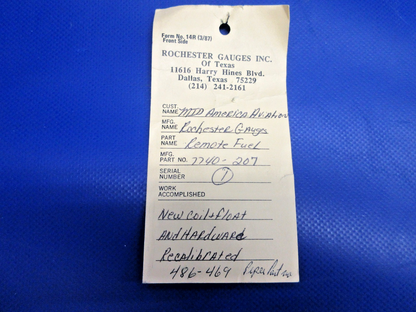 Form No. 14R (3/87)
Front Side
ROCHESTER GAUGES INC.
Of Texas
11616 Harry Hines Blvd.
Dallas, Texas 75229
(214) 241-2161
CUST.
NAME MID America Aviation
MFG.
NAME Rochester Gauges
PART
NAME Remote Fuel
MFG.
PART NO. 7740-207
SERIAL
NUMBER 1
WORK
ACCOMPLISHED
New coil + float
AND HARDWARE
Recalibrated
486-469